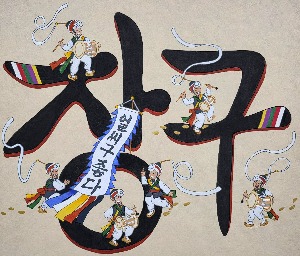 장구
얼씨구좋다